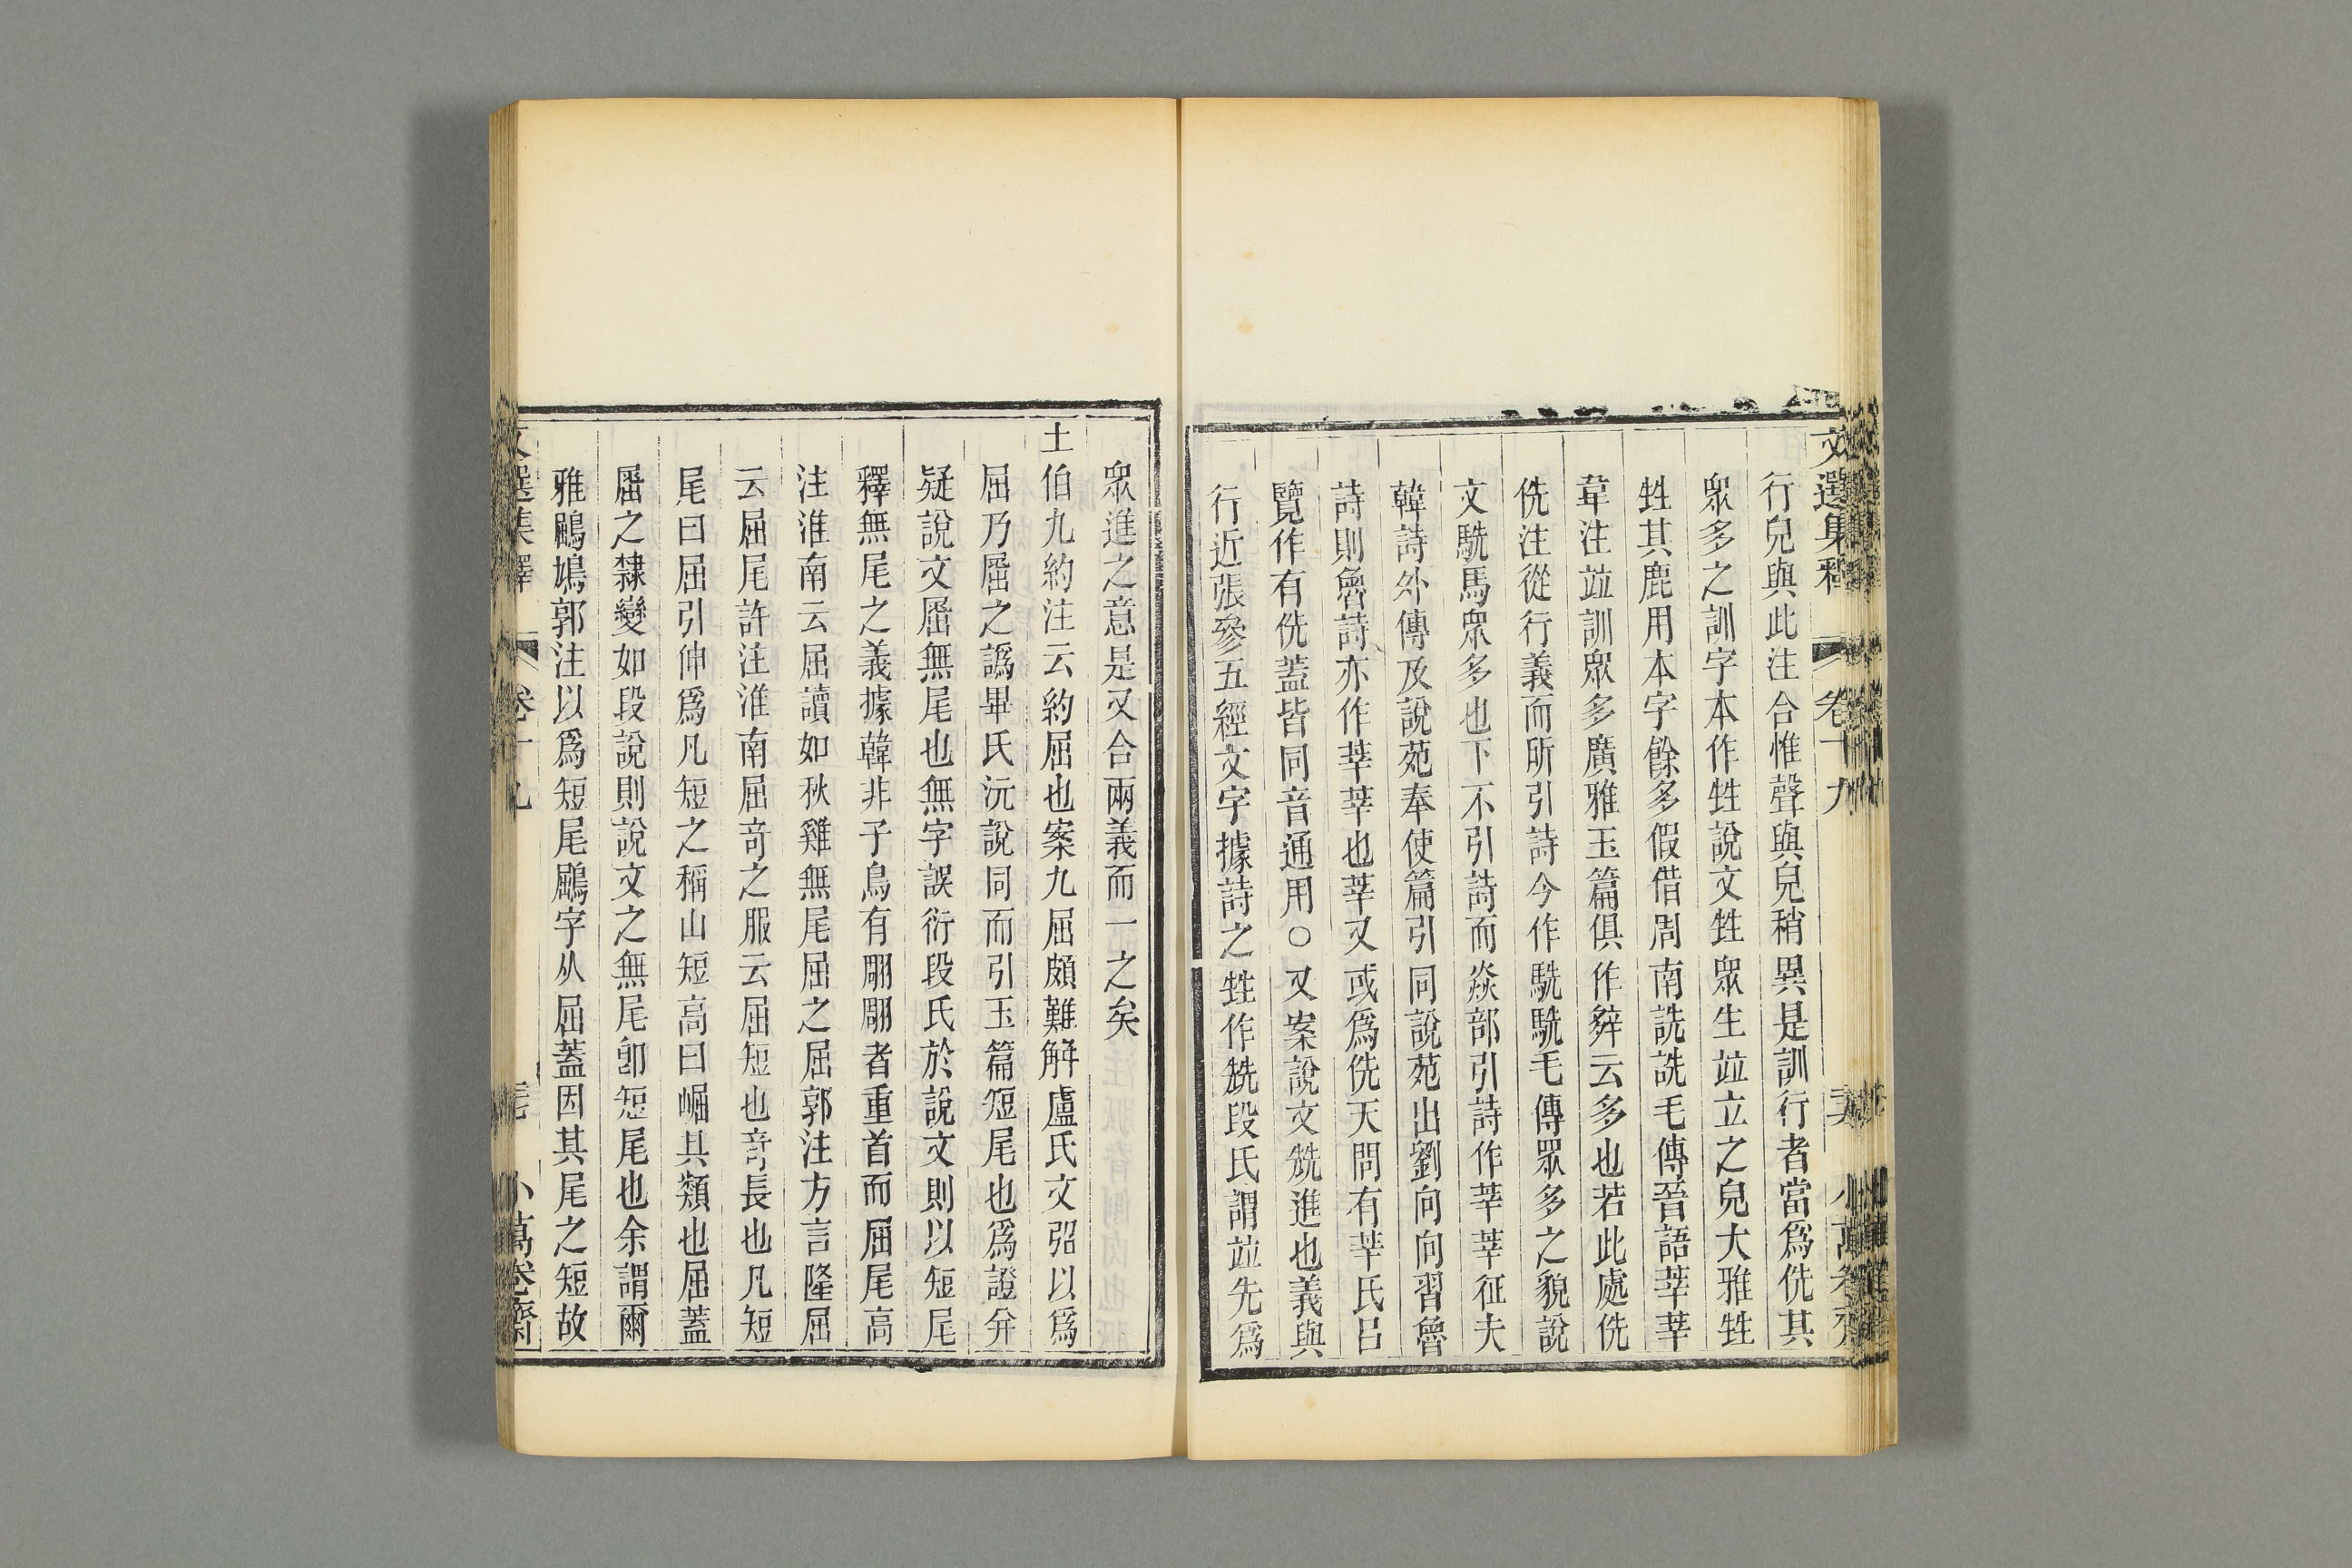 文選集釋 卷十九 小萬卷齋
行皃與此注合惟聲與皃稍異是訓行者當爲侁其
眾多之訓字本作甡說文甡眾生竝立之皃大雅甡
甡其鹿用本字餘多假借周南詵詵毛傳晉語莘莘
韋注竝訓眾多廣雅玉篇俱作㜪云多也若此處侁
侁注從行義而所引詩今作駪駪毛傳眾多之貌說
文駪馬眾多也下不引詩而焱部引詩作莘莘征夫
韓詩外傳及說苑奉使篇引同說苑出劉向向習魯
詩則魯詩亦作莘莘也莘又或爲侁天問有莘氏呂
覽作有侁蓋皆同音通用○又案說文兟進也義與
行近張參五經文字據詩之甡作兟段氏謂竝先爲
眾進之意是又合兩義而一之矣
土伯九約注云約屈也案九屈頗難解盧氏文弨以爲
屈乃𡲬之譌畢氏沅說同而引玉篇短尾也爲證并
疑說文𡲬無尾也無字誤衍段氏於說文則以短尾
釋無尾之義據韓非子鳥有翢翢者重首而屈尾高
注淮南云屈讀如秋雞無尾屈之屈郭注方言隆屈
云屈尾許注淮南屈奇之服云屈短也奇長也凡短
尾曰屈引伸爲凡短之稱山短高曰崛其類也屈蓋
𡲬之隸變如段說則說文之無尾卽短尾也余謂爾
雅鶌鳩郭注以爲短尾鶌字从屈蓋因其尾之短故
文選集釋 卷十九 小萬卷齋